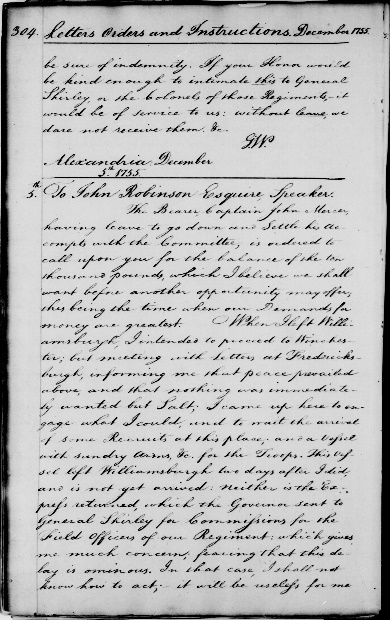 304. Letters Orders and Instructions. December 1755.
be sure of indemnity. If your Honor would
be kind enough to intimate this to General
Shirley, or the Colonels of those Regiments, it
would be of service to us: without leave, we
dare not receive them. &c.
GW.
Alexandria, December
5.th 1755.
5.th To John Robinson Esquire, Speaker.
The Bearer Captain John Mercer,
having leave to go down and Settle his Ac-
compts with the Committee, is ordered to
call upon you for the balance of the ten
thousand pounds, which I believe we shall
want before another opportunity may offer;
this being the time when our Demands for
money are greatest. When I left Willi-
amsburgh, I intended to proceed to Winches-
ter; but meeting with Letters at Fredericks-
burgh, informing me that peace prevailed
above, and that nothing was immediate-
ly wanted but Salt; I came up here to en-
gage what I could, and to wait the arrival
of some Recruits at this place, and a vessel
with sundry Arms, &c. for the Troops. This Ves-
sel left Williamsburgh two days after I did,
and is not yet arrived: neither is the Ex-
press returned, which the Governor sent to
General Shirley for Commissions for the
Field Officers of our Regiment: which gives
me much concern, fearing that this de-
lay is ominous. In that case, I shall not
know how to act; it will be useless for me